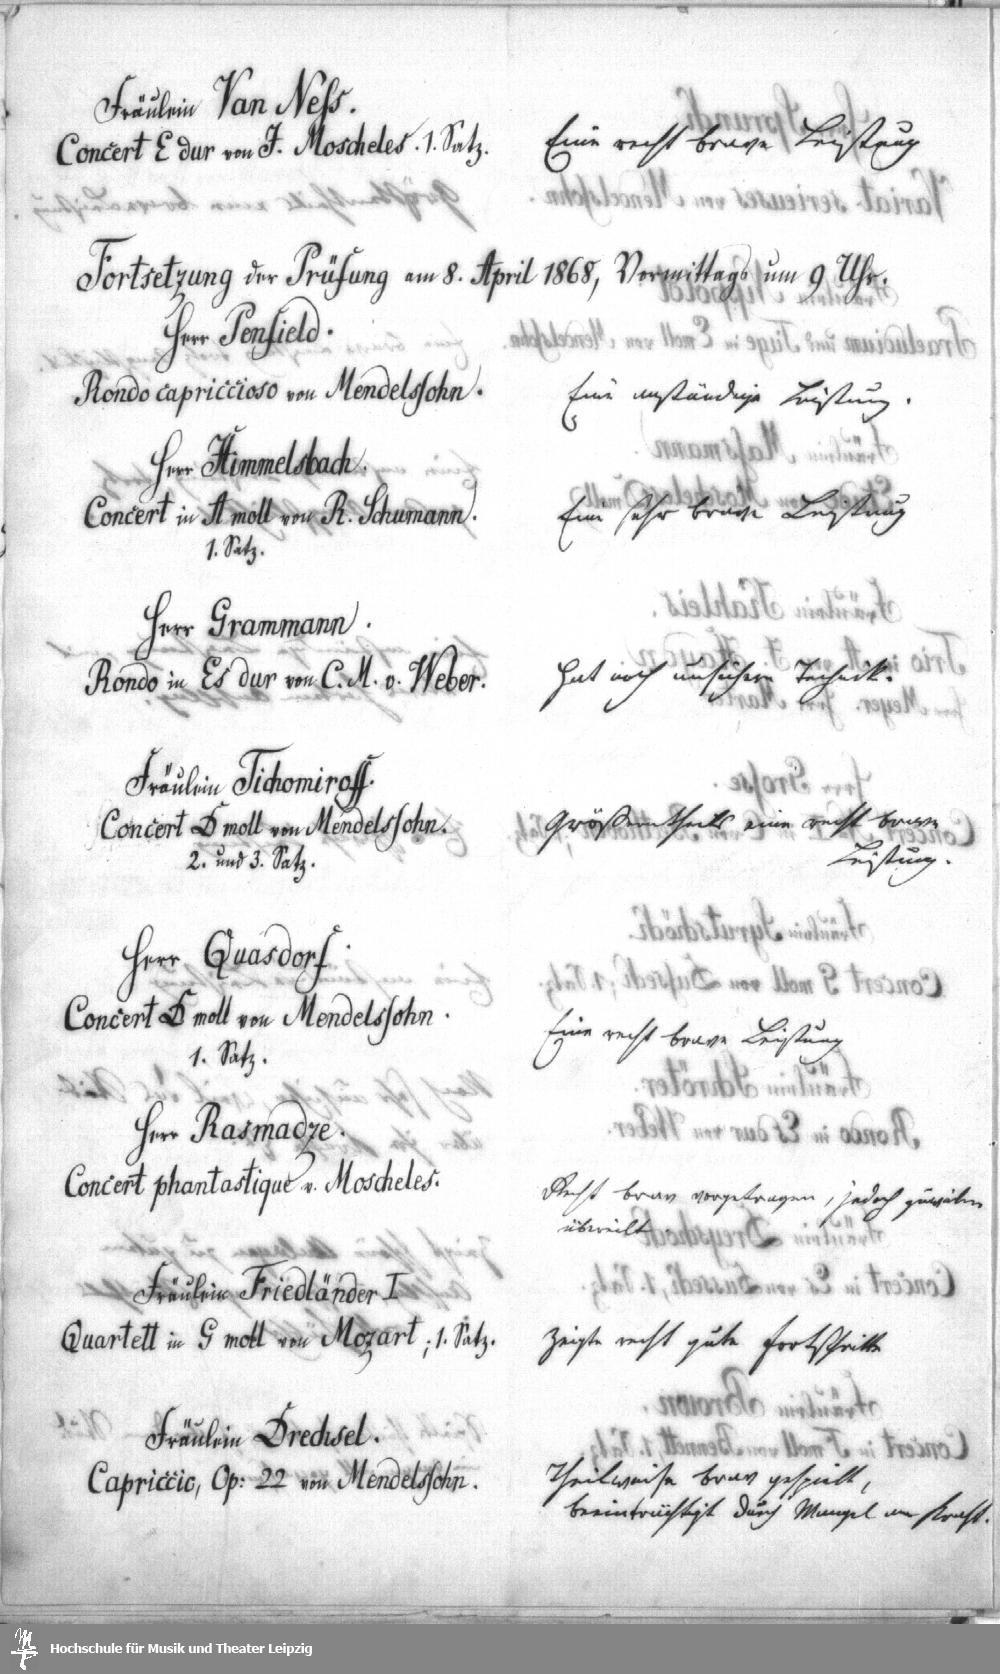 Fräulein Van Ness.
Concert E dur von J. Moscheles. 1. Satz.
Eine recht brave Leistung
Fortsetzung der Prüfung am 8. April 1868, Vormittags um 9 Uhr.
Herr Penfield.
Rondo capriccioso von Mendelssohn.
Eine anständige Leistung.
Herr Himmelsbach.
Concert in A moll von R. Schumann.
1. Satz.
Eine sehr brave Leistung
Herr Grammann.
Rondo in Es dur von C. M. v. Weber.
Hat noch unsichere Technik.
Fräulein Tichomiroff.
Concert D moll von Mendelssohn.
2. und 3. Satz.
Größentheils eine recht brave
Leistung.
Herr Quasdorf.
Concert D moll von Mendelssohn.
1. Satz.
Eine recht brave Leistung
Herr Rasmadze.
Concert phantastique v. Moscheles.
Recht brav vorgetragen, jedoch zuweilen
übereilt
Fräulein Friedländer I
Quartett in G moll von Mozart; 1. Satz.
Zeigte recht gute Fortschritte
Fräulein Drechsel.
Capriccio, Op: 22 von Mendelssohn.
Theilweise brav gespielt,
beeinträchtigt durch Mangel an Kraft.
Hochschule für Musik und Theater Leipzig